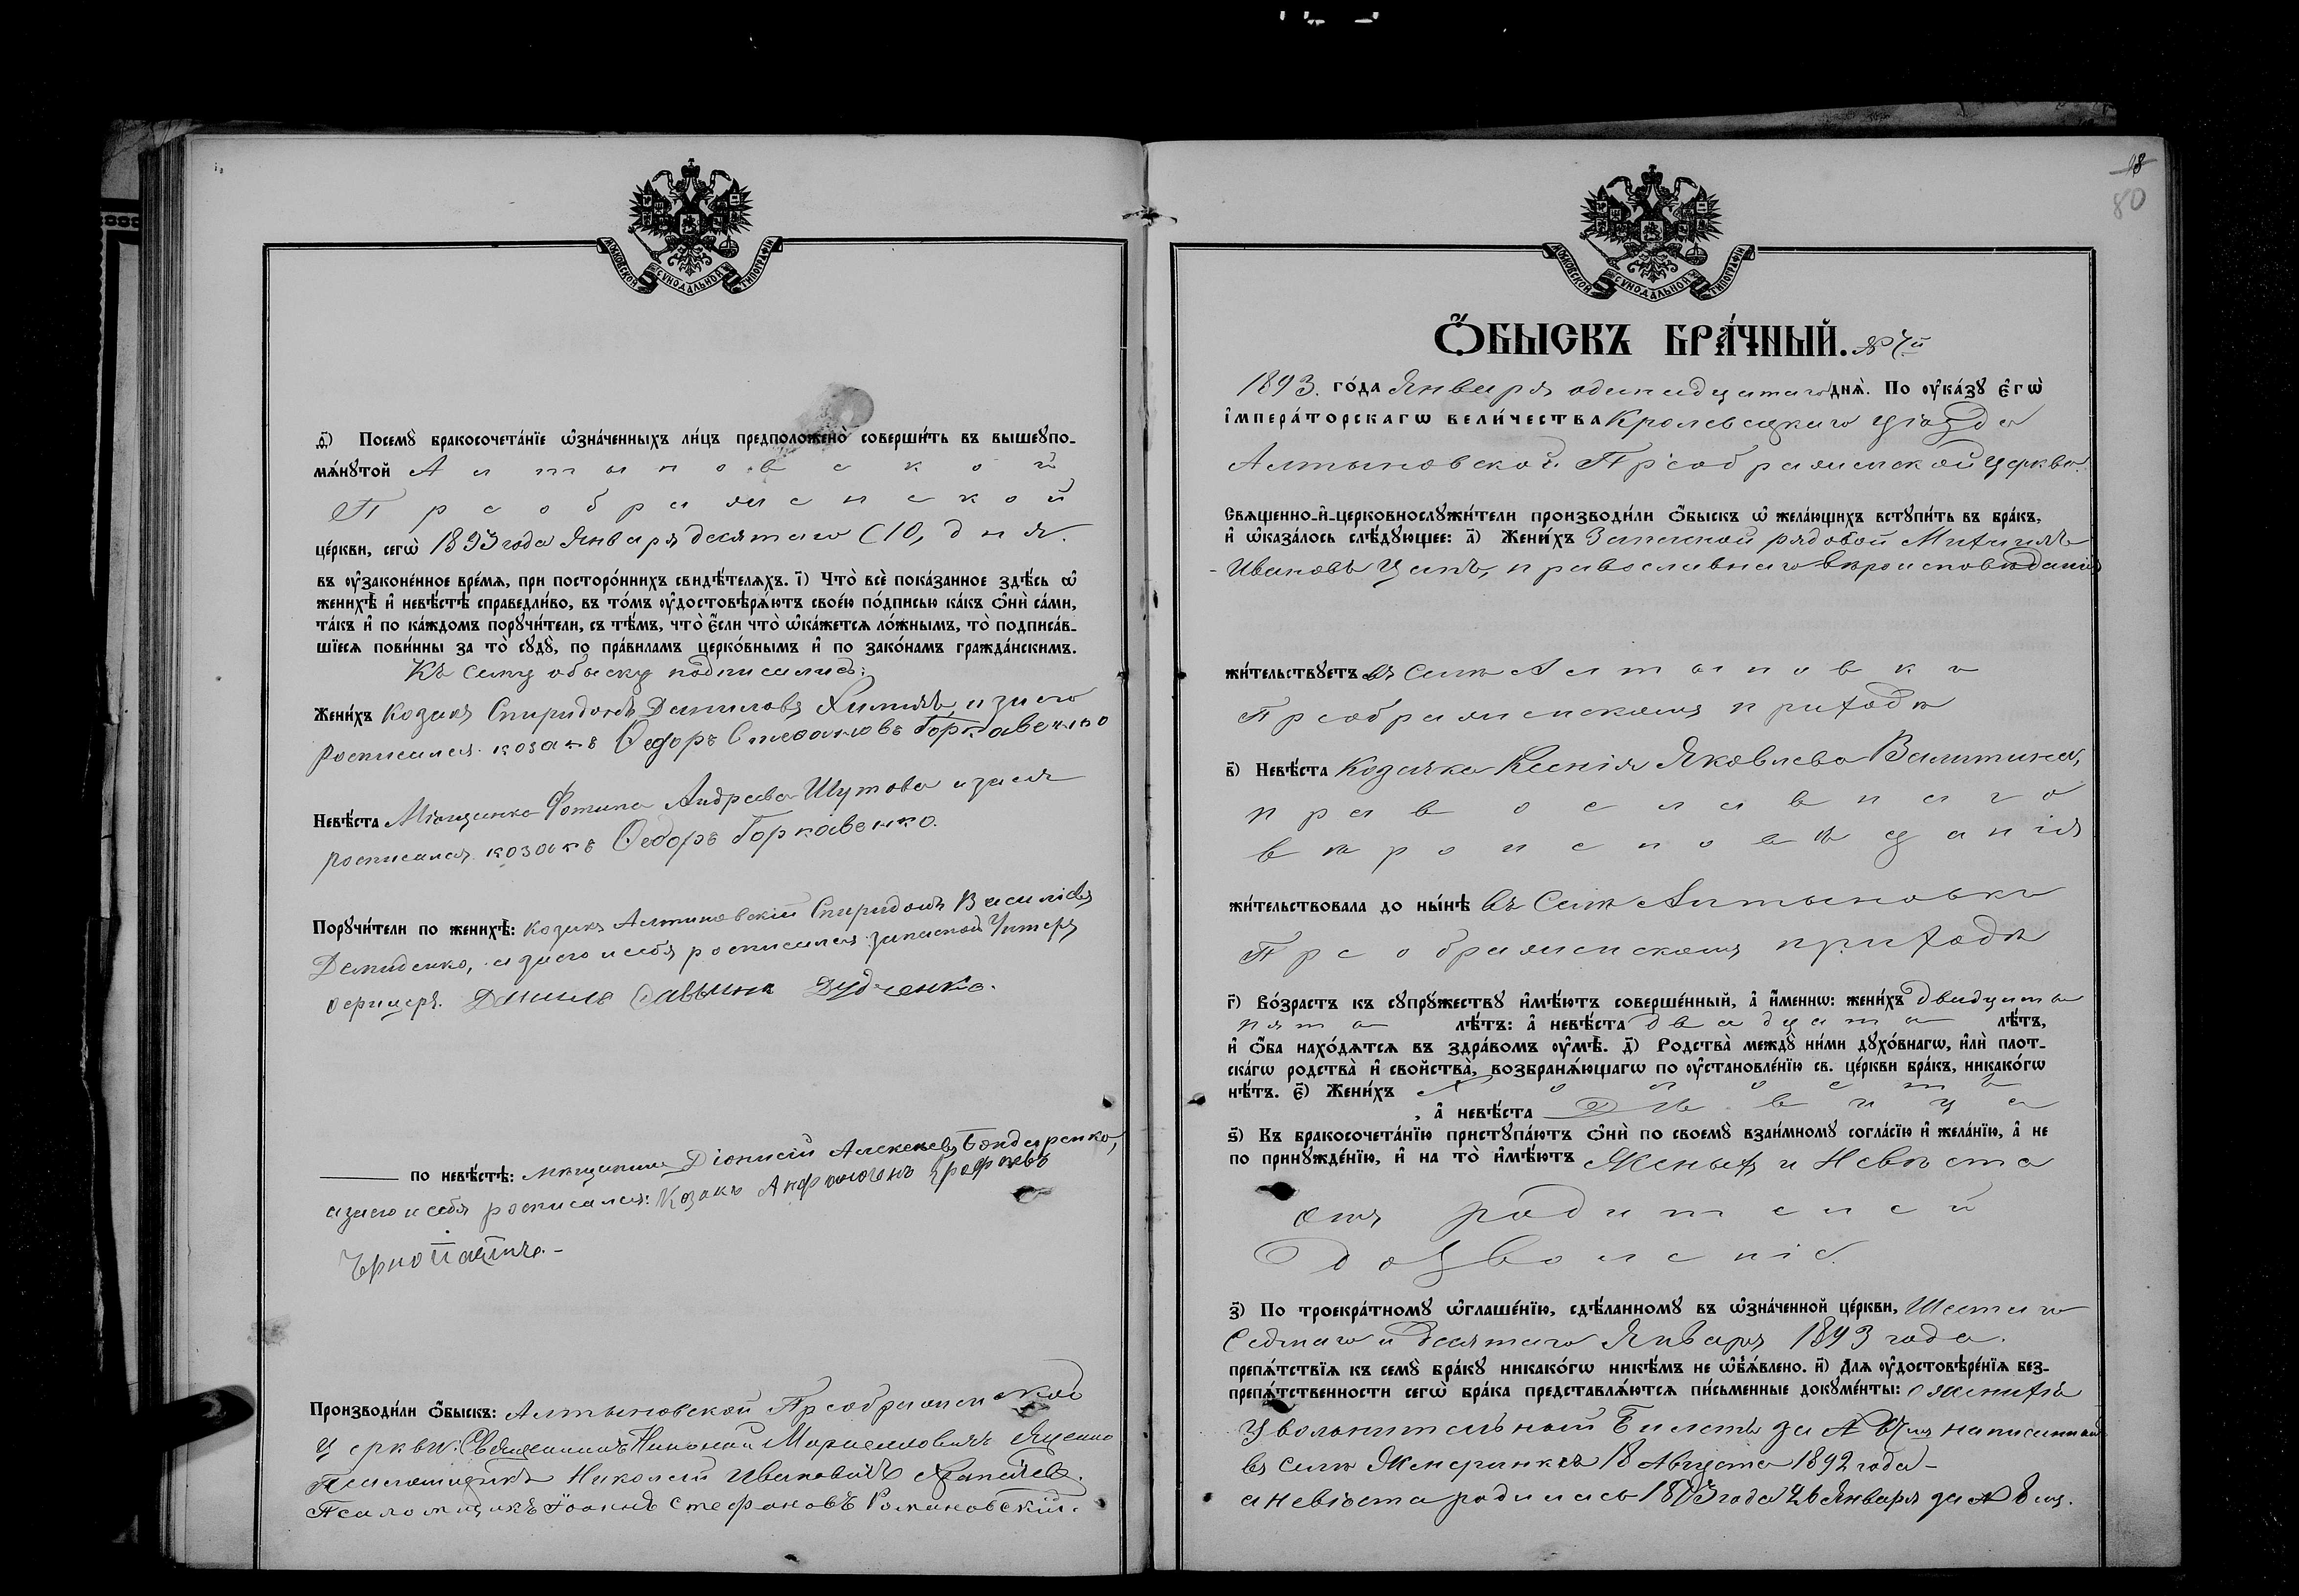 МОСКОВСКОЙ СѴНОДАЛЬНОЙ ТИПОГРАФІИ
ѳ҃) Посемꙋ̀ бракосочета́нїе ѡ҆зна́ченныхъ ли́цъ предположено̀ соверши́ть въ вышеꙋпо-
мѧ́нꙋтой Алтыновской
Преображенской
це́ркви, сегѡ̀ 1893 года Января десятаго (10, дня.
въ ᲂу҆законе́нное вре́мѧ, при посторо́ннихъ свидѣ́телѧхъ. і҃) Что̀ всѐ пока́занное здѣ́сь ѡ҆
женихѣ̀ и҆ невѣ́стѣ справедли́во, въ то́мъ ᲂу҆достовѣрѧ́ютъ свое́ю по́дписью ка́къ ѻ҆нѝ са́ми,
та́къ и҆ по ка́ждомъ порꙋчи́тели, съ тѣ́мъ, что̀ є҆́сли что̀ ѡ҆ка́жетсѧ ло́жнымъ, то̀ подписа́в-
шїесѧ пови́нны за то̀ сꙋдꙋ̀, по пра́виламъ церко́внымъ и҆ по зако́намъ гражда́нскимъ.
Къ сему обыску подписались:
Жени́хъ Козакъ Спиридонъ Даниловъ а за него
росписался козакъ Федоръ Степановъ Горкавенко
Невѣ́ста Мѣщанка Фотина Андреева Шутова а за нея
росписался козакъ Федоръ Горкавенко.
Порꙋчи́тели по женихѣ̀: козакъ Алтиновскій Спиридонъ Василіевъ
Демиденко, а за него и себя росписался запасной Унтеръ
офицеръ Данило Савьинъ Дудченко.
по невѣ́стѣ: мѣщанинъ Діонисій Алексеевъ Бондаренко,
а за него и себя росписался: Козакъ
Производи́ли ѻ҆́быскъ: Алтыновской Преображенской
церкви: Священникъ Яценко
Псаломщикъ Николай Ивановичъ
Псаломщикъ Іоаннъ Стефановъ Романовскій.
80
МОСКОВСКОЙ СѴНОДАЛЬНОЙ ТИПОГРАФІИ
Ѻ҆́БЫСКЪ БРА́ЧНЫЙ. № 7й
1893. го́да Января одинадцатаго днѧ̀. По ᲂу҆ка́зꙋ є҆гѡ̀
і҆мпера́торскагѡ вели́чества Кролевецкаго уѣзда
Алтыновской Преображенской церкви.
Свѧщенно-и҆-церковнослꙋжи́тели производи́ли ѻ҆́быскъ ѡ҆ жела́ющихъ встꙋпи́ть въ бра́къ,
и҆ ѡ҆каза́лось слѣ́дꙋющее: а҃) Жени́хъ Запасной рядовой Михаилъ
Ивановъ Цапъ, православнаго вѣроисповѣданія
жи́тельствꙋетъ въ селѣ Алтыновкѣ
Преображенскомъ приходѣ
в҃) Невѣ́ста Козачка Ксенія Яковлева
православнаго
вѣроисповѣданія
жи́тельствовала до ны́нѣ въ Селѣ Алтыновкѣ
Преображенскомъ приходѣ
г҃) Во́зрастъ къ сꙋпрꙋ́жествꙋ и҆мѣ́ютъ соверше́нный, а҆ и҆́меннѡ: жени́хъ двадцать
пять лѣ́тъ: а҆ невѣ́ста двадцать лѣ́тъ,
и҆ ѻ҆́ба нахо́дѧтсѧ въ здра́вомъ ᲂу҆мѣ̀. д҃) Родства̀ междꙋ̀ ни́ми дꙋхо́внагѡ, и҆лѝ плот-
ска́гѡ родства̀ и҆ сво́йства̀, возбранѧ́ющагѡ по ᲂу҆становле́нїю св. це́ркви бра́къ, никако́гѡ
нѣ́тъ. є҃) Жени́хъ Холостъ
, а҆ невѣ́ста Дѣвица
ѕ҃) Къ бракосочета́нїю пристꙋпа́ютъ ѻ҆нѝ по своемꙋ̀ взаи́мномꙋ согла́сїю и҆ жела́нїю, а҆ не
по принꙋжде́нїю, и҆ на то̀ и҆мѣ́ютъ Женихъ и Невѣста
отъ родителей
дозволеніе.
з҃) По троекра́тномꙋ ѡ҆глаше́нїю, сдѣ́ланномꙋ въ ѡ҆зна́ченной це́ркви, Шестаго
Седмаго и Десятаго Января 1893 года.
препѧ́тствїѧ къ семꙋ̀ бра́кꙋ никако́гѡ никѣ́мъ не ѡ҆бъѧ́влено. и҃) Длѧ ᲂу҆достовѣре́нїѧ без-
препѧ́тственности сегѡ̀ бра́ка представлѧ́ютсѧ пи́сьменные докꙋме́нты: о женихѣ
Увольнительный Билетъ за № написанный
въ селѣ Жмеринкѣ 18 Августа 1892 года –
а невѣста родилась 1873 года 26 Января за № 8 мъ.